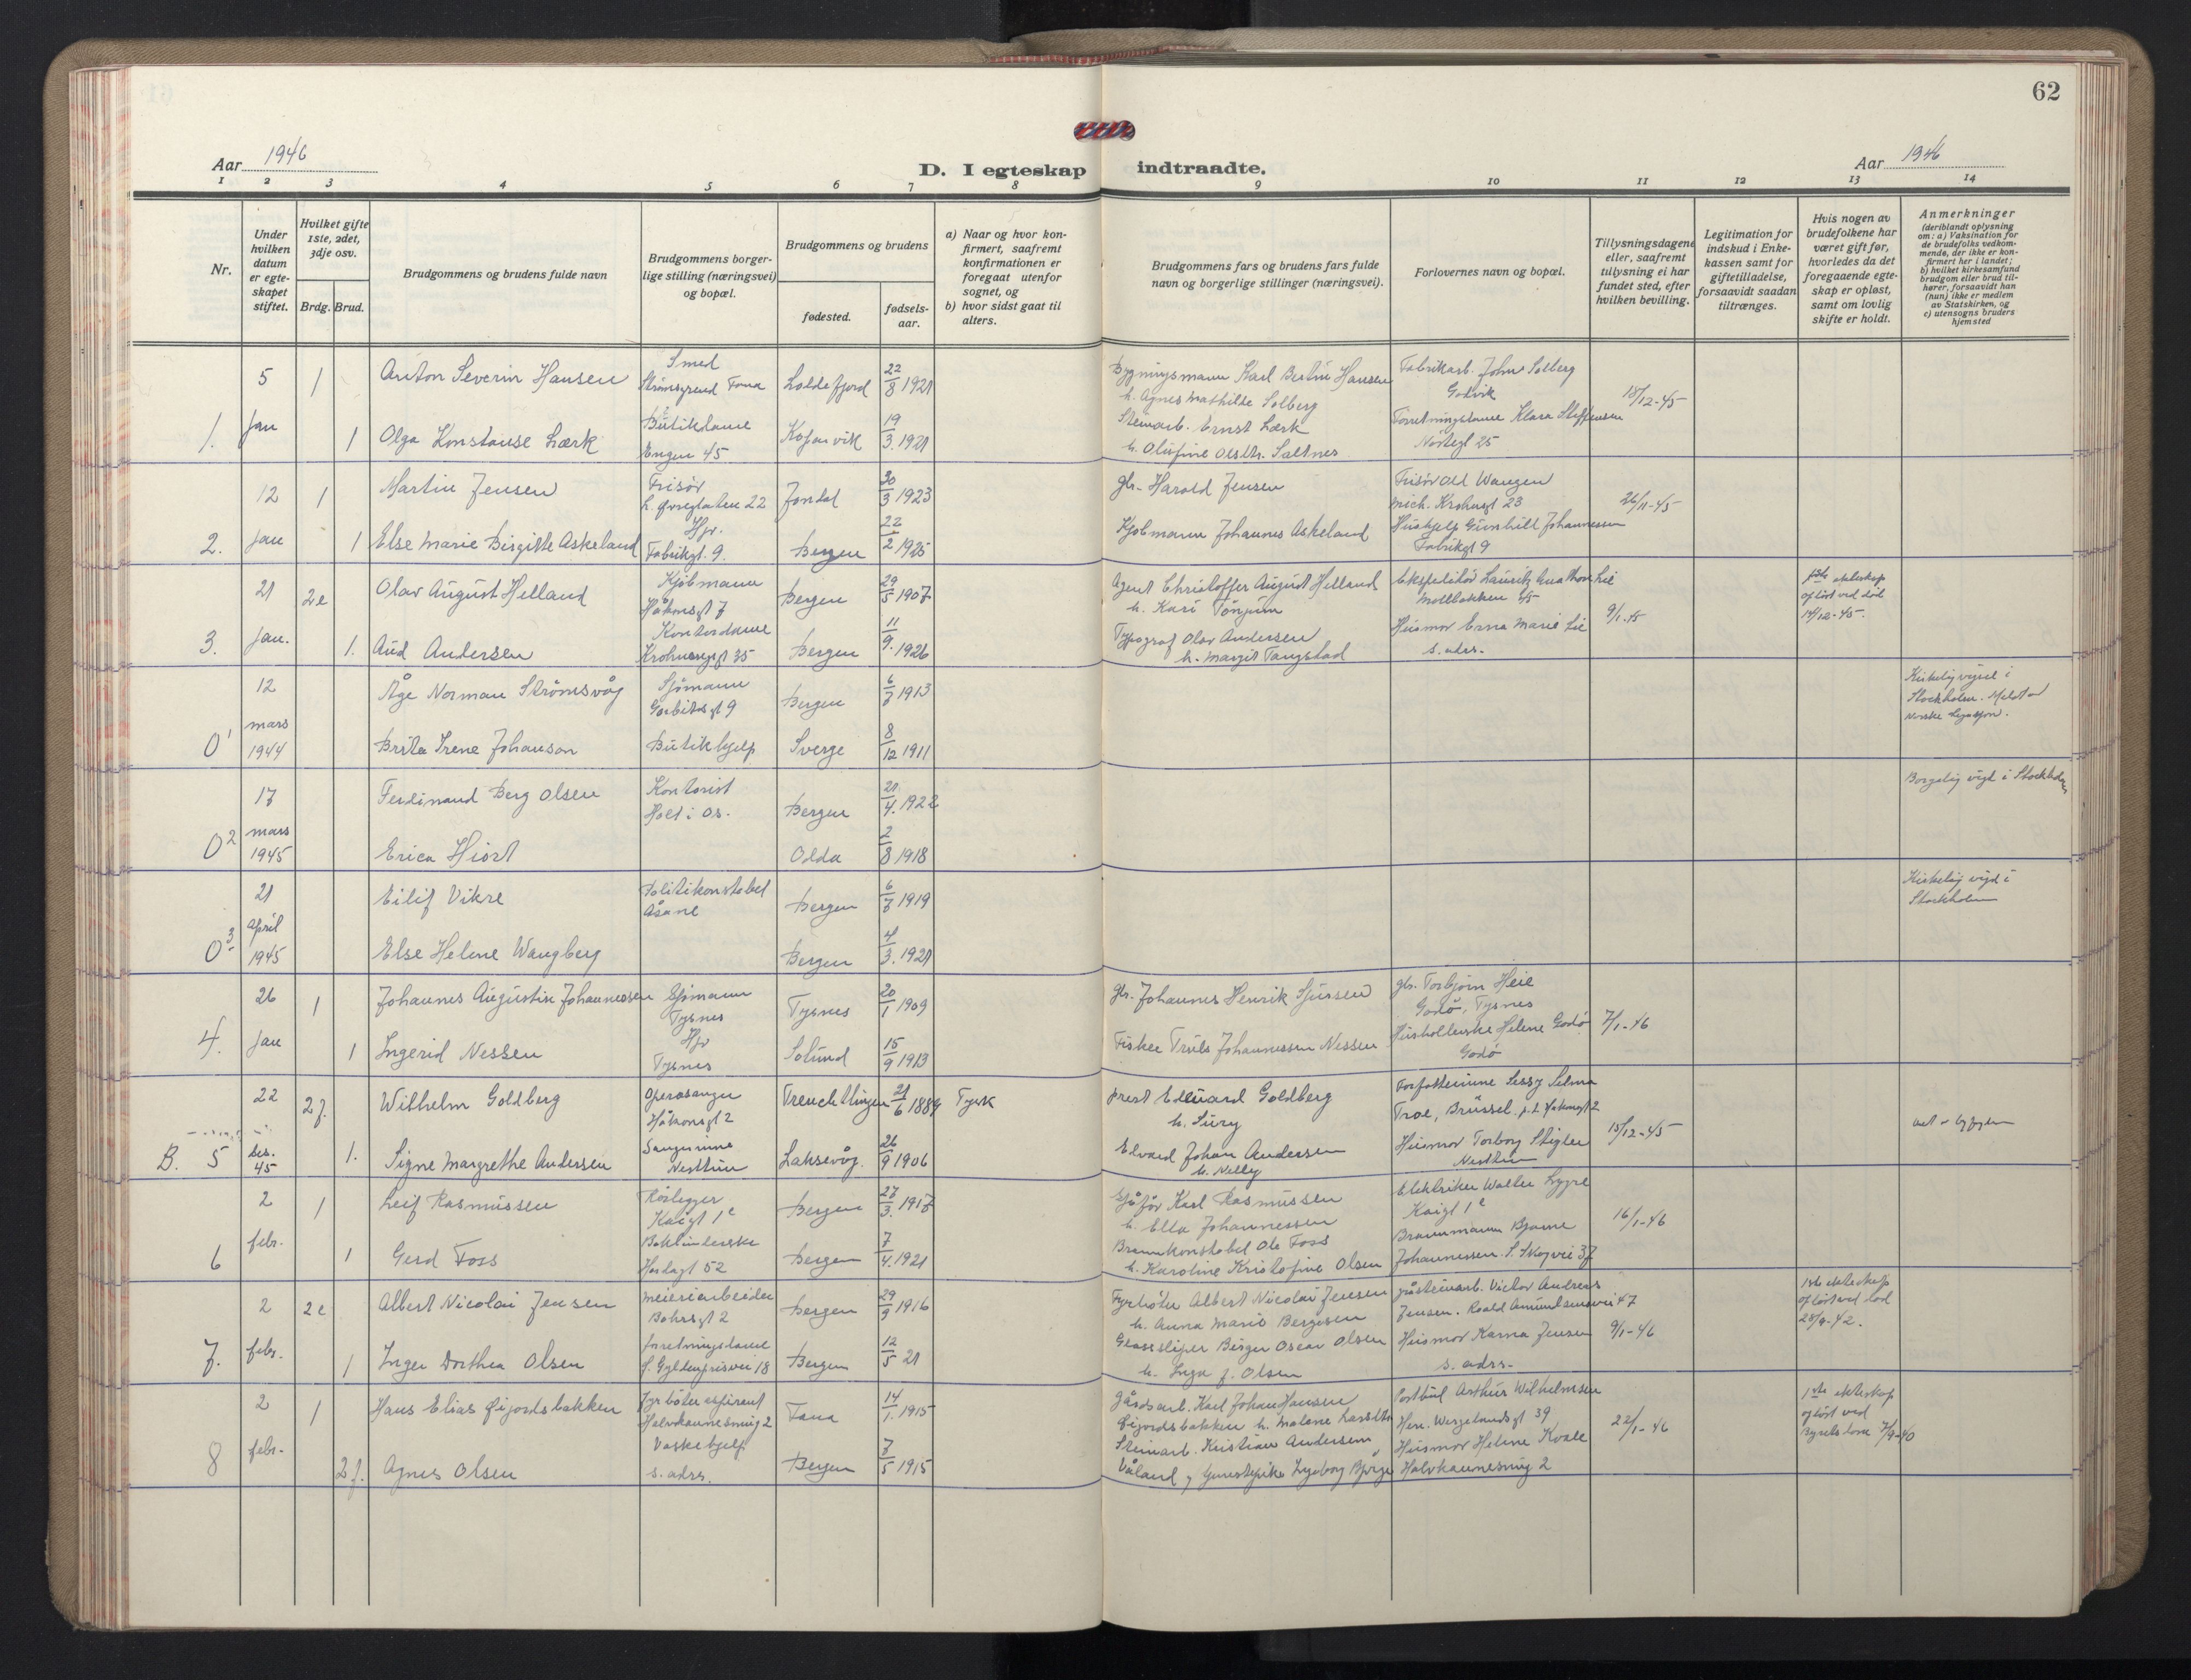 62
Aar 1946
D. I egteskap indtraadte.
Aar 1946
1 2 3 4 5 6 7 8 9 10 11 12 13 14
Nr.
Under hvilken datum er egte-skapet stiftet.
Hvilket gifte 1ste, 2det, 3dje osv.
Brdg. Brud.
Brudgommens og brudens fulde navn
Brudgommens borger-lige stilling (næringsvei) og bopæl.
Brudgommens og brudens
fødested.
fødsels-aar.
a) Naar og hvor kon-firmert, saafremt konfirmationen er foregaat utenfor sognet, og
b) hvor sidst gaat til alters.
Brudgommens fars og brudens fars fulde navn og borgerlige stillinger (næringsvei).
Forlovernes navn og bopæl.
Tillysningsdagene eller, saafremt tillysning ei har fundet sted, efter hvilken bevilling.
Legitimation for indskud i Enke-kassen samt for giftetilladelse, forsaavidt saadan tiltrænges.
Hvis nogen av brudefolkene har været gift før, hvorledes da det foregaaende egte-skap er opløst, samt om lovlig skifte er holdt.
Anmerkninger (deriblandt oplysning om: a) Vaksination for de brudefolks vedkom-mende, der ikke er kon-firmert her i landet; b) hvilket kirkesamfund brudgom eller brud til-hører, forsaavidt han (hun) ikke er medlem av Statskirken, og c) utensogns bruders hjemsted
1. 5 Jan
1 Anton Severin Hansen Smed Fana 22/8 1921
Bygningsmann Karl Hansen h. Agnes Mathilde Solberg
Fabrikarb. John Solberg Godvik
18/12-45
1 Olga Konstanse Lærk Butikdame Engen 45 Kopervik 19/3. 1921
Steinarb. Ernst Lærk
Forretningsdame Klara Steffensen Nøstegt 25
2. 12 Jan
1 Martin Jensen Frisør L. Øvregaten 22 Jondal 30/3 1923
Harald Jensen
Frisør Wangen Mich. Krohnsgt 23
26/11-45
1 Else Marie Birgitte Askeland Hjv. Fabrikgt. 9. Bergen 22/2 1925
Kjøbmann Johannes Askeland
Hushjelp Gunhild Johannessen Fabrikgt 9
3. 21 Jan.
2e Olav August Helland Kjøbmann Håkonsgt 7 Bergen 29/5 1907
Agent Christoffer August Helland h. Kari
Ekspeditør Lauritz Lie Møllbakken
9/1-45
1ste ekteskap opløst ved død 14/12-45.
1. Aud Andersen Kontordame 35 Bergen 11/9. 1926
Typograf Olav Andersen h. Margit Tangstad
Husmor Erna Marie Lie s. adrs.
0 1 12 mars 1944
Åge Norman Strømsvåg Sjømann 9 Bergen 6/7 1913
Brita Irene Johanson Butikhjelp Sverge 8/12 1911
Kirkelig vigsel i Stockholm. Meldt av norske legasjon.
0 2 17 mars 1945
Ferdinand Berg Olsen Kontorist i Os. Bergen 21/4. 1922
Erica Hiort Odda 2/8 1918
Borgelig vigd i Stockholm
0 3 21 april 1945
Eilif Vikre Politikonstabel Åsane Bergen 6/7 1919
Else Helene Wangberg Bergen 4/3. 1921
Kirkelig vigd i Stockholm
4. 26 Jan
1 Johannes Augustin Johannessen Sjømann Tysnes Tysnes 20/1 1909
Johannes Henrik Sjursen
Torbjørn Heie Godø, Tysnes
7/1-46
1 Ingerid Nessen Hjv Tysnes Solund 15/9 1913
Fisker Truls Johannessen Nessen
Husholderske Helene Godø Godø
B. 5 22 des. 45
2 f. Wilhelm Goldberg Operasanger Håkonsgt 2 Treuchtlingen 21/6 1889 Tysk
prest Eduard Goldberg h. Sury
Forfatterinne Sessy Selma Troe, Brüssel. p.t Håkonsgt 2
15/12-45
1. Signe Margrethe Andersen Sangerinne Nesttun Laksevåg. 26/9 1906
Edvard Johan Andersen h. Nelly
Husmor Torborg Stigler Nesttun
6 2 febr.
1 Leif Rasmussen Rørlegger Kaigt 1c Bergen 27/3. 1917
Sjåfør Karl Rasmussen h. Ella Johannessen
Elektriker Walter Lygre Kaigt 1c
16/1-46
1 Gerd Foss 52 Bergen 7/4. 1921
Brannkonstabel Ole Foss h. Karoline Kristofine Olsen
Brannmann Bjarne Johannessen. S. Skogvei 37
7. 2 febr.
2e Albert Nicolai Jensen Meieriarbeider Bohrsgt 2 Bergen 29/9 1916
Fyrbøter Albert Nicolai Jensen h. Anna Marie Bergesen
Victor Andreas Jensen. Roald Amundsensvei 47
9/1-46
1ste ekteskap opløst ved død 42.
1 Inger Dorthea Olsen forretningsdame S. Gyldenprisvei 18 Bergen 12/5 21
Glassliper Birger Oscar Olsen h. Inga f. Olsen
Husmor Karna Jensen s. adrs.
8 2 febr.
1 Hans Elias Gjordsbakken Fyrbøter aspirant Halvkannesmug 2 Fana 14/1. 1915
Gårdsarb. Karl Johan Hansen Gjordsbakken h. Malene
Postbud Arthur Wilhelmsen Hen. Wergelandsgt 39
22/1-46
1ste ekteskap opløst ved 40
2 f. Agnes Olsen Vaskehjelp s. adrs. Bergen 7/5 1915
Steinarb. Kristian Andersen Våland
Husmor Helene Kvale Halvkannesmug 2